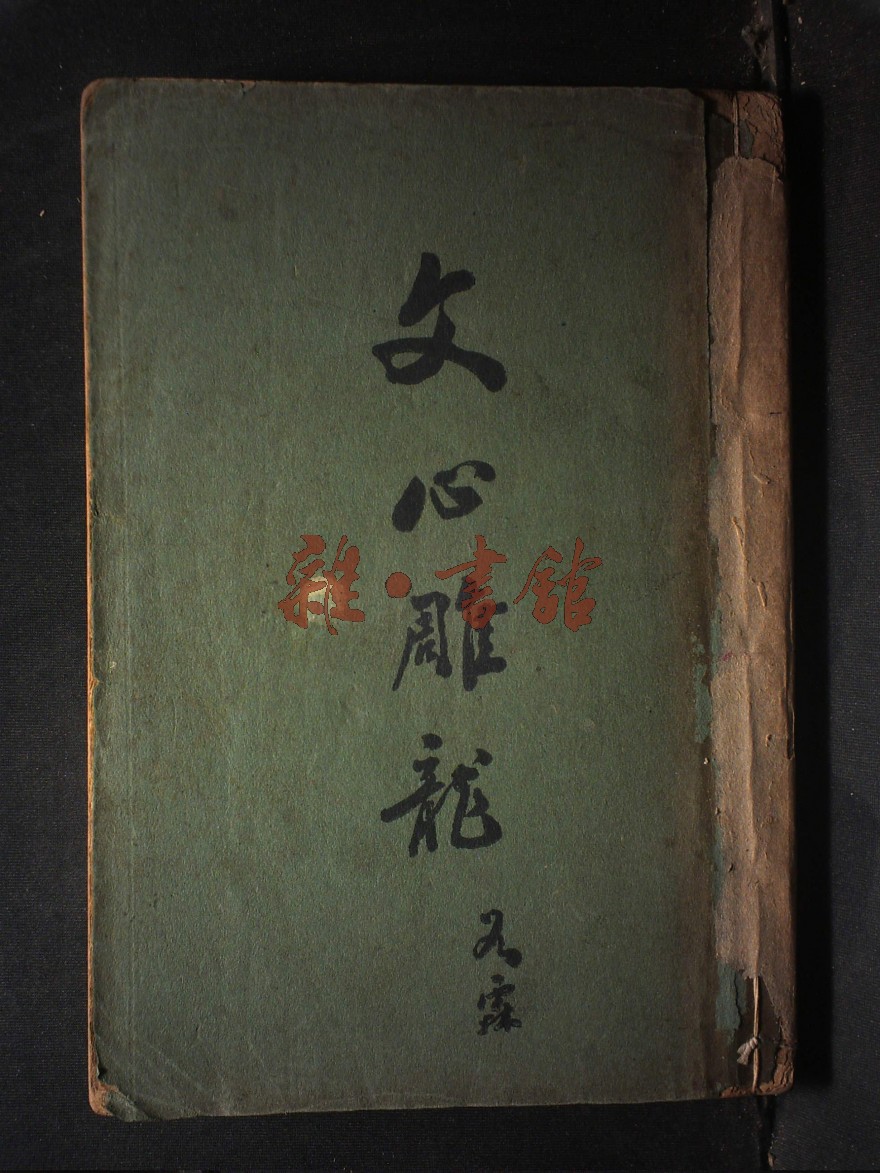 文心雕龍
若霖
雜·書館